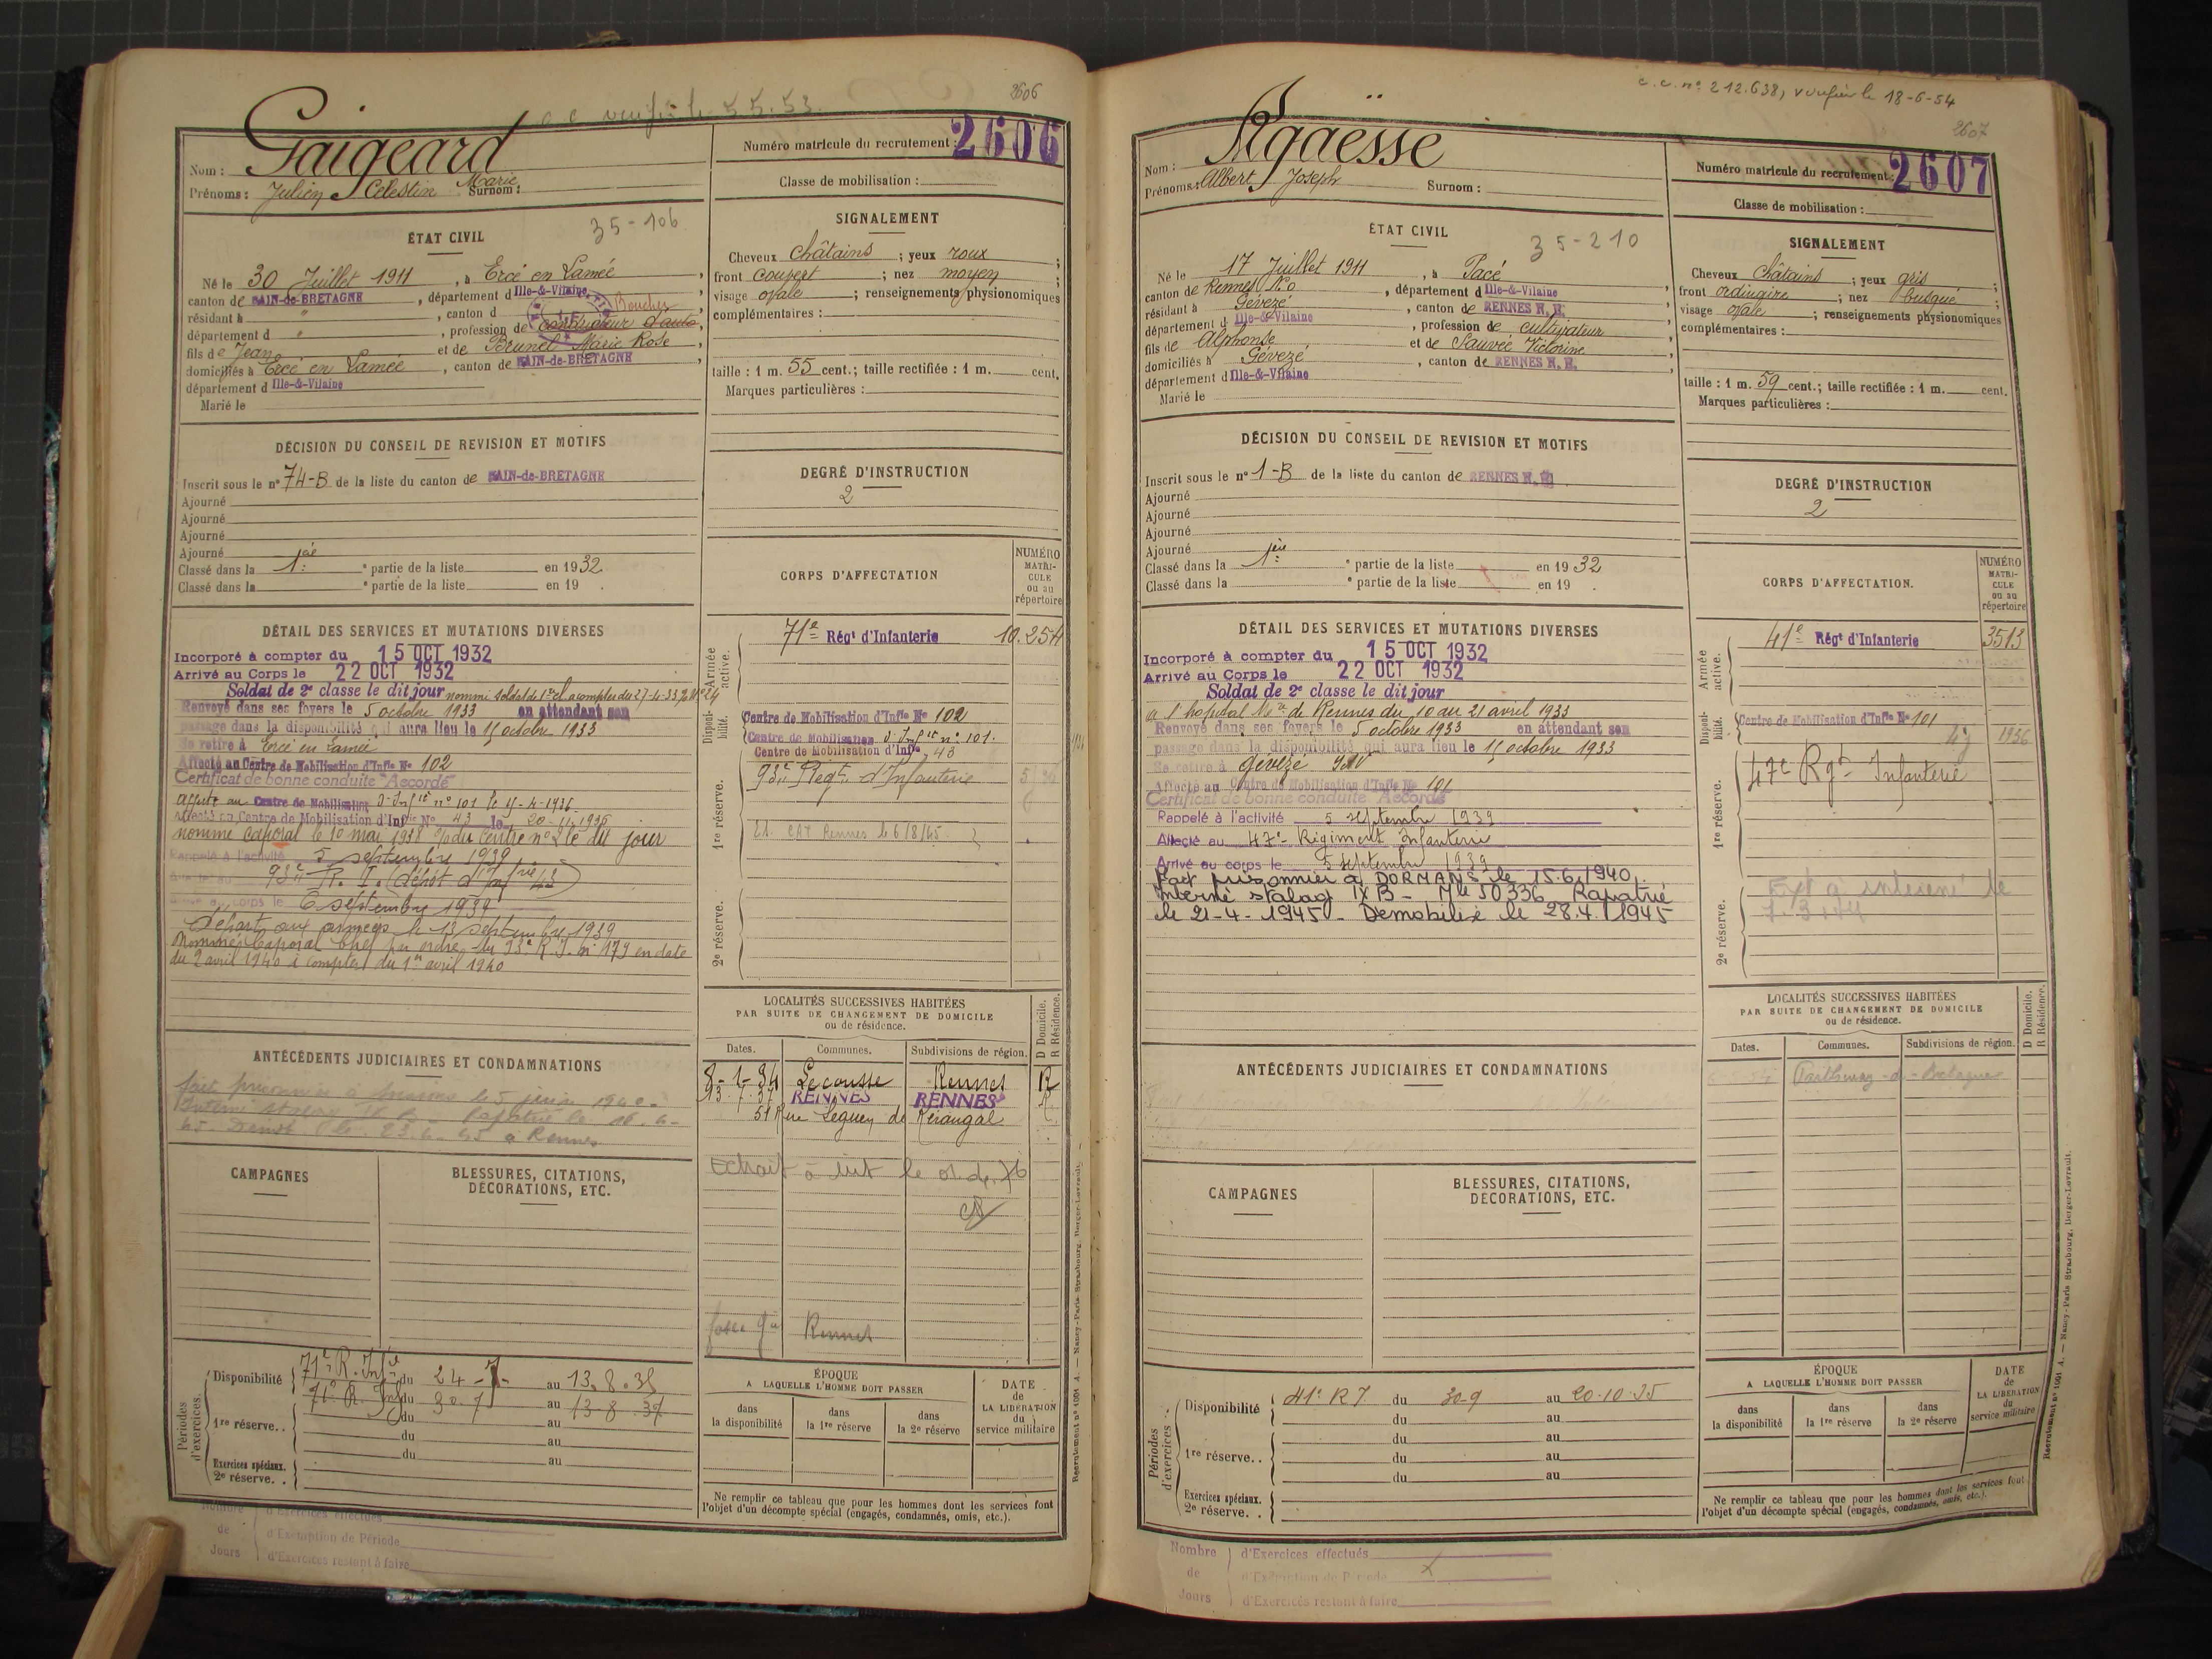 2606
c.c. vérifié le 5.5.53.
Nom : Gaigeard
Prénoms : Julien Célestin Marie Surnom :
Numéro matricule du recrutement : 2606
Classe de mobilisation :
ÉTAT CIVIL
35-106
Né le 30 Juillet 1911, à Ercé en Lamée,
canton de BAIN-de-BRETAGNE, département d Ille-&-Vilaine,
résidant à " , canton d
Boucher
département d " , profession de conducteur d'auto,
fils de Jean et de Brunel Marie Rose
domiciliés à Ercé en Lamée, canton de BAIN-de-BRETAGNE,
département d Ille-&-Vilaine
Marié le
SIGNALEMENT
Cheveux châtains ; yeux roux ;
front couvert ; nez moyen ;
visage ovale ; renseignements physionomiques
complémentaires :
taille : 1 m. 55 cent.; taille rectifiée : 1 m. cent.
Marques particulières :
DÉCISION DU CONSEIL DE REVISION ET MOTIFS
Inscrit sous le n° 74-B de la liste du canton de BAIN-de-BRETAGNE
Ajourné
Ajourné
Ajourné
Ajourné
Classé dans la 1re partie de la liste en 1932
Classé dans la e partie de la liste en 19 .
DEGRÉ D'INSTRUCTION
2
CORPS D'AFFECTATION
NUMÉRO
MATRI-
CULE
ou au
répertoire
DÉTAIL DES SERVICES ET MUTATIONS DIVERSES
Incorporé à compter du 15 OCT 1932
Arrivé au Corps le 22 OCT 1932
Soldat de 2e classe le dit jour nommé soldat de 1re cl. à compter du 27-4-33
Renvoyé dans ses foyers le 5 octobre 1933 en attendant son
passage dans la disponibilité qui aura lieu le 15 octobre 1933
Se retire à Ercé en Lamée
Affecté au Centre de Mobilisation d'Infie No 102
Certificat de bonne conduite "Accordé"
Affecté au Centre de Mobilisation d'Infie n° 101 le 15-4-1936.
Affecté au Centre de Mobilisation d'Infie No 43 le 20-11-1936
nommé caporal le 10 mai 1938 du Centre n° le dit jour
Rappelé à l'activité 5 septembre 1939
Affecté au 93e R. I. (dépôt d'Infie 43)
Arrivé au corps le 6 septembre 1939
Départ aux armées le 13 septembre 1939
Nommé Caporal Chef par ordre du 93e R.I. n° 179 en date
du 2 avril 1940 à compter du 1er avril 1940
Armée active.
71e Régt d'Infanterie 10.254
Disponibilité.
Centre de Mobilisation d'Infie No 102
Centre de Mobilisation d'Infie n° 101.
Centre de Mobilisation d'Infie 43
1re réserve.
93e Régt d'Infanterie
CAT Rennes le 6/8/45.
2e réserve.
LOCALITÉS SUCCESSIVES HABITÉES
PAR SUITE DE CHANGEMENT DE DOMICILE
ou de résidence.
D Domicile.
R Résidence.
Dates. Communes. Subdivisions de région.
8-1-34 Lecousse Rennes R
13.7.37 RENNES RENNES R
51 Rue Leguen de Kerangal
Extrait à int le
Rennes
ANTÉCÉDENTS JUDICIAIRES ET CONDAMNATIONS
fait prisonnier à le 5 juin 1940
Interné stalag Rapatrié le 16-4-
45. Démob le 23.6.45 à Rennes
CAMPAGNES
BLESSURES, CITATIONS,
DÉCORATIONS, ETC.
Périodes d'exercices.
Disponibilité 71e R. Infie du 24-7- au 13.8.35
71e R. Inf du 30.7 au 13-8.37
1re réserve.. du au
du au
Exercices spéciaux.
2e réserve. .
ÉPOQUE
A LAQUELLE L'HOMME DOIT PASSER
dans la disponibilité
dans la 1re réserve
dans la 2e réserve
DATE
de
LA LIBÉRATION
du
service militaire
Ne remplir ce tableau que pour les hommes dont les services font
l'objet d'un décompte spécial (engagés, condamnés, omis, etc.).
Recrutement n° 1001 A. — Nancy-Paris-Strasbourg, Berger-Levrault.
Nombre de Jours
d'Exercices effectués
d'Exemption de Période
d'Exercices restant à faire
c.c. n° 212.638, vérifié le 18-6-54
2607
Nom : Agaësse
Prénoms : Albert Joseph Surnom :
Numéro matricule du recrutement : 2607
Classe de mobilisation :
ÉTAT CIVIL
35-210
Né le 17 Juillet 1911, à Pacé
canton de Rennes N.O, département d Ille-&-Vilaine
résidant à Gévezé, canton de RENNES N. O.
département d Ille-&-Vilaine, profession de cultivateur
fils de Alphonse et de Sauvée Victorine
domiciliés à Gévezé, canton de RENNES N. O.
département d Ille-&-Vilaine
Marié le
SIGNALEMENT
Cheveux châtains ; yeux gris ;
front ordinaire ; nez busqué ;
visage ovale ; renseignements physionomiques
complémentaires :
taille : 1 m. 59 cent.; taille rectifiée : 1 m. cent.
Marques particulières :
DÉCISION DU CONSEIL DE REVISION ET MOTIFS
Inscrit sous le n° 1-B de la liste du canton de RENNES N. O.
Ajourné
Ajourné
Ajourné
Ajourné
Classé dans la 1re partie de la liste en 1932
Classé dans la e partie de la liste en 19 .
DEGRÉ D'INSTRUCTION
2
CORPS D'AFFECTATION.
NUMÉRO
MATRI-
CULE
ou au
répertoire
DÉTAIL DES SERVICES ET MUTATIONS DIVERSES
Incorporé à compter du 15 OCT 1932
Arrivé au Corps le 22 OCT 1932
Soldat de 2e classe le dit jour
à l'hopital Mre de Rennes du 10 au 21 avril 1933
Renvoyé dans ses foyers le 5 octobre 1933 en attendant son
passage dans la disponibilité qui aura lieu le 15 octobre 1933
Se retire à Gévezé I&V
Affecté au Centre de Mobilisation d'Infie No 101
Certificat de bonne conduite Accordé
Rappelé à l'activité 5 septembre 1939
Affecté au 47e Régiment Infanterie
Arrivé au corps le 5 septembre 1939
Fait prisonnier à DORMANS le 15.6.1940.
Interné stalag IX B - Mle 50336 Rapatrié
le 21-4-1945 - Démobilisé le 28.4.1945
Armée active.
41e Régt d'Infanterie 3513
Disponibilité.
Centre de Mobilisation d'Infie No 101
47 1936
1re réserve.
47e Rgt Infanterie
2e réserve.
Ext à interessé le
7.3.74
LOCALITÉS SUCCESSIVES HABITÉES
PAR SUITE DE CHANGEMENT DE DOMICILE
ou de résidence.
D Domicile.
R Résidence.
Dates. Communes. Subdivisions de région.
Parthenay-de-Bretagne
ANTÉCÉDENTS JUDICIAIRES ET CONDAMNATIONS
CAMPAGNES
BLESSURES, CITATIONS,
DÉCORATIONS, ETC.
Périodes d'exercices.
Disponibilité 41e RI du 30-9 au 20-10-35
du au
1re réserve.. du au
du au
du au
Exercices spéciaux.
2e réserve. .
ÉPOQUE
A LAQUELLE L'HOMME DOIT PASSER
dans la disponibilité
dans la 1re réserve
dans la 2e réserve
DATE
de
LA LIBÉRATION
du
service militaire
Ne remplir ce tableau que pour les hommes dont les services font
l'objet d'un décompte spécial (engagés, condamnés, omis, etc.).
Recrutement n° 1001 A. — Nancy-Paris-Strasbourg, Berger-Levrault.
Nombre de Jours
d'Exercices effectués
d'Exemption de Période
d'Exercices restant à faire